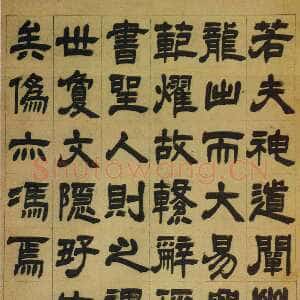 若夫神道闡
龍出而大易
範耀故繫辭
書聖人則之
世夐文隱好
矣偽亦馮焉
Shufawang.CN